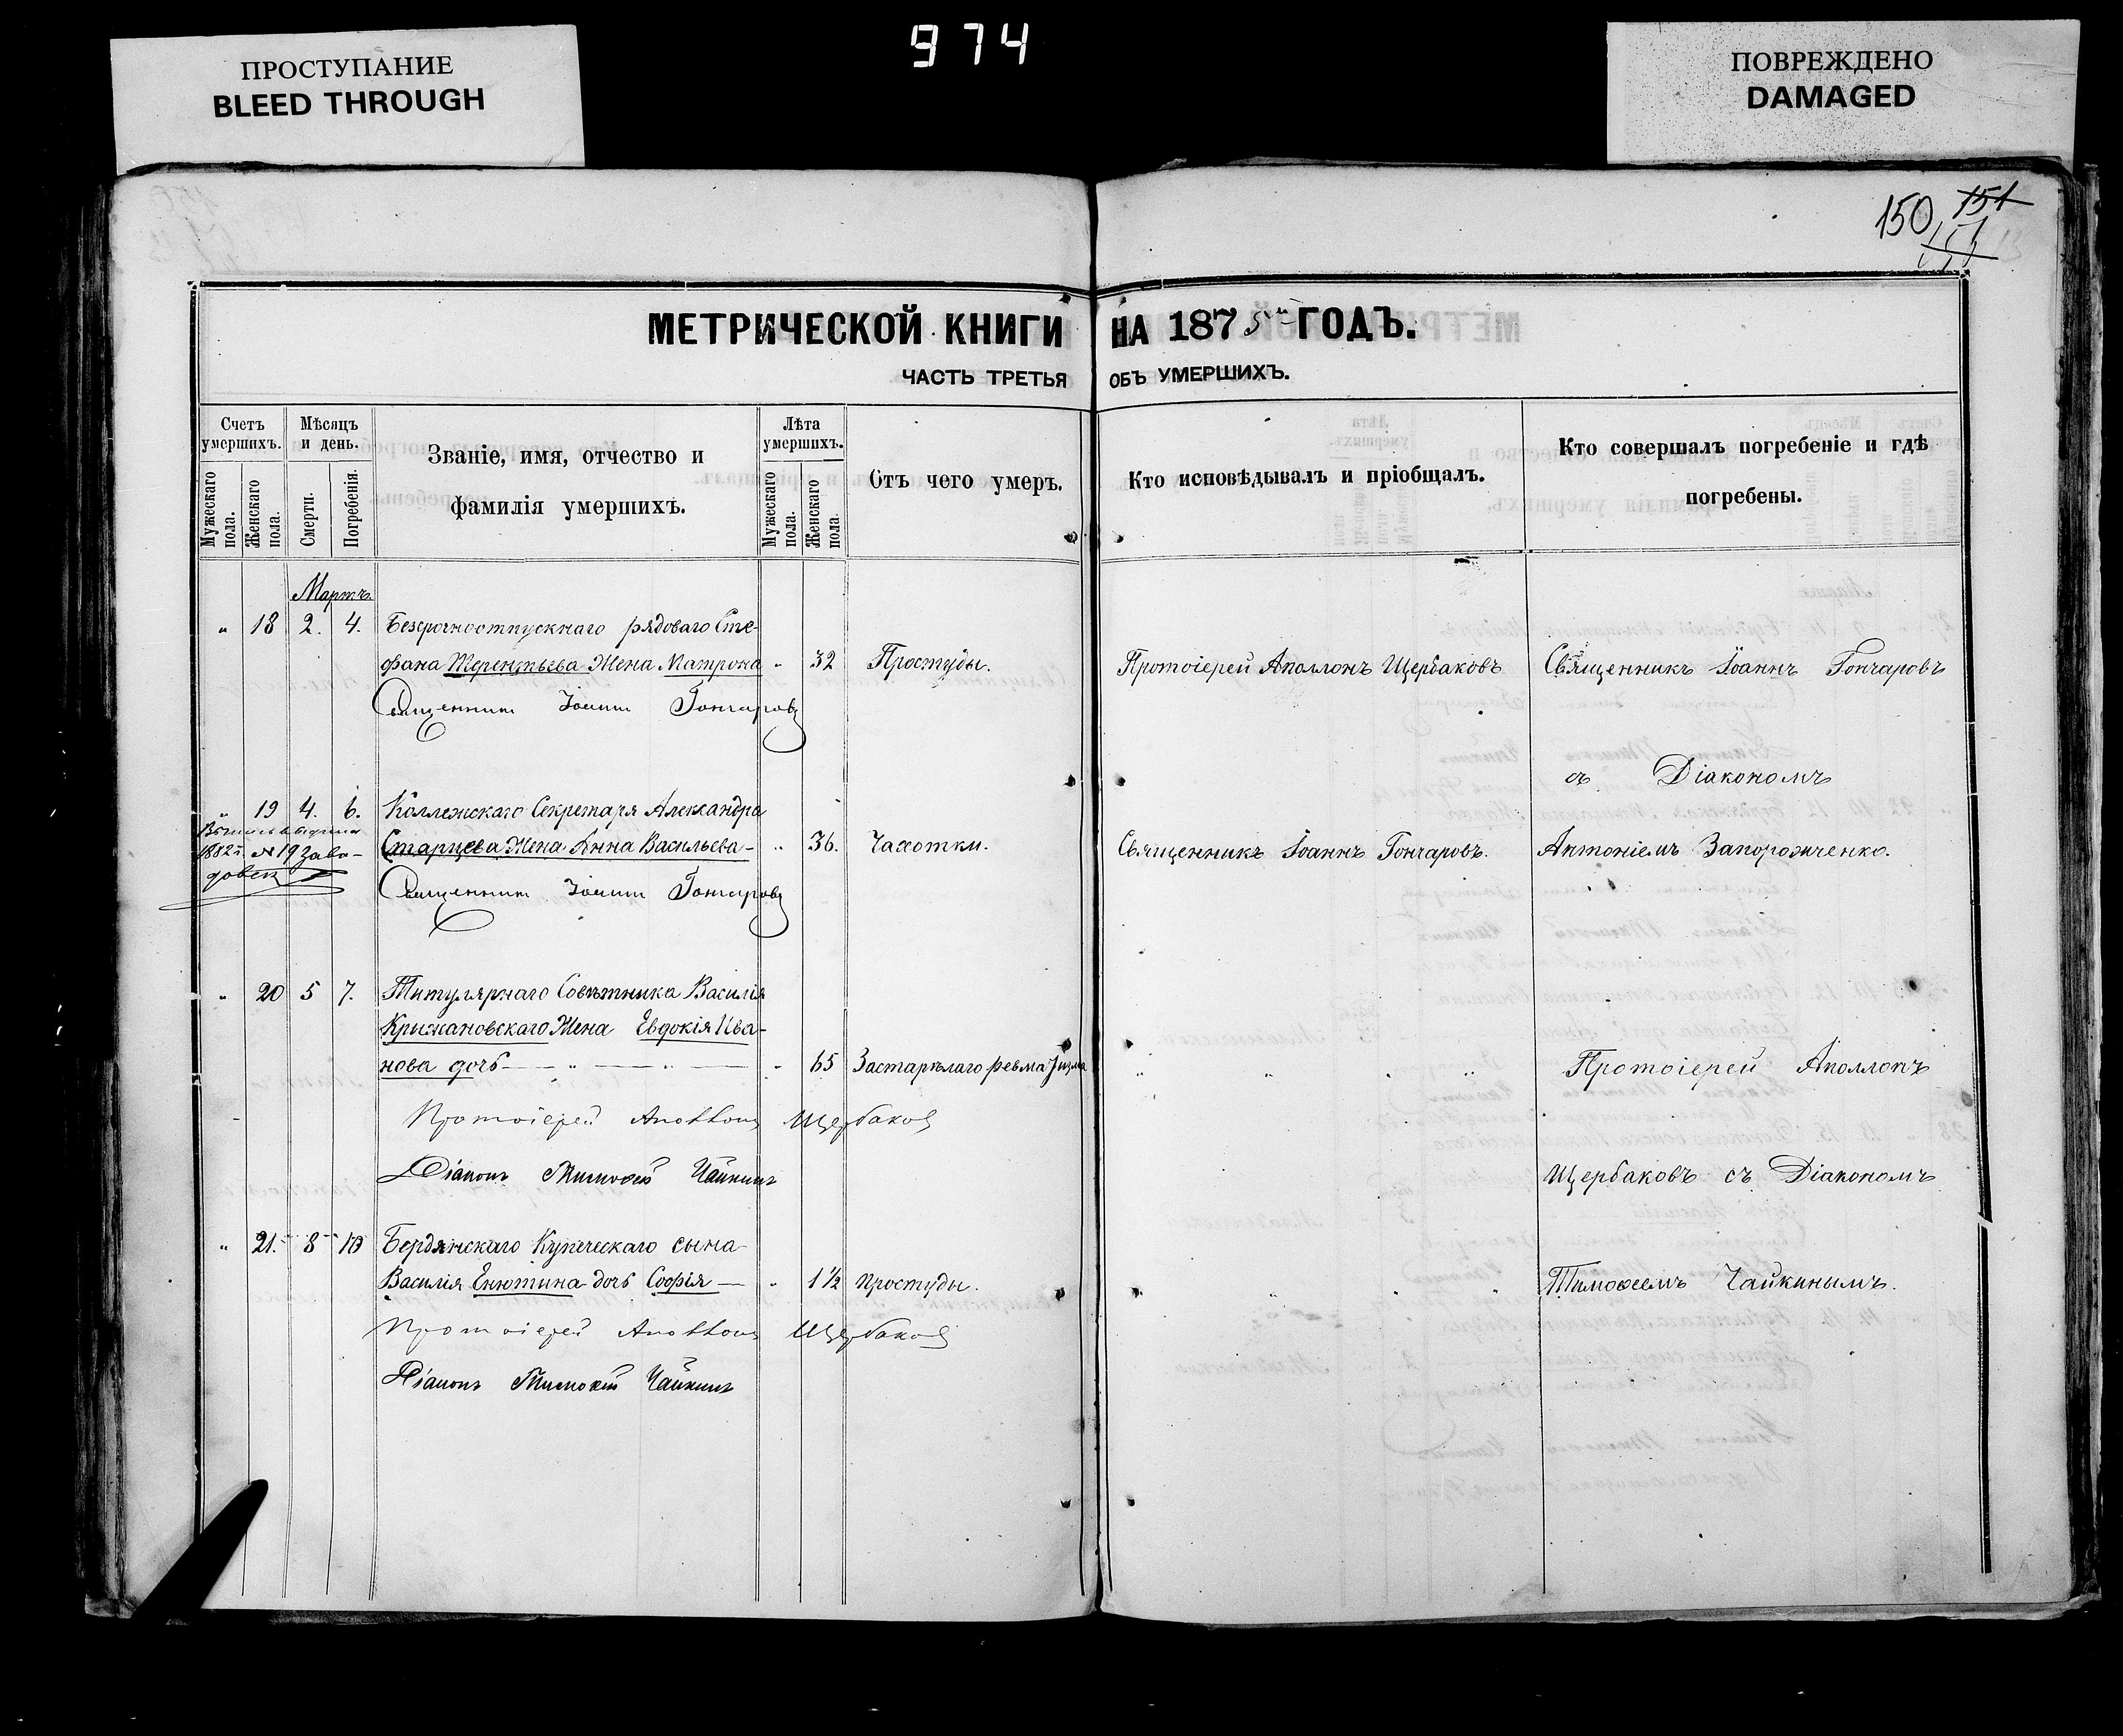 974
ПРОСТУПАНИЕ
BLEED THROUGH
ПОВРЕЖДЕНО
DAMAGED
150 151
МЕТРИЧЕСКОЙ КНИГИ НА 1875 ГОДЪ.
ЧАСТЬ ТРЕТЬЯ ОБЪ УМЕРШИХЪ.
Счетъ умершихъ.
Мужескаго пола.
Женскаго пола.
Мѣсяцъ и день.
Смерти.
Погребенія.
Званіе, имя, отчество и
фамилія умершихъ.
Лѣта умершихъ.
Мужескаго пола.
Женскаго пола.
Отъ чего умеръ.
Кто исповѣдывалъ и пріобщалъ.
Кто совершалъ погребеніе и гдѣ
погребены.
Мартъ.
" 18 2. 4. Безсрочноотпускнаго рядоваго Сте-
фана Терентьева Жена Матрона " 32 Простуды. Протоіерей Аполлонъ Щербаковъ Священникъ Іоаннъ Гончаровъ
Священникъ Іоаннъ Гончаровъ
съ Діакономъ
" 19 4. 6. Коллежскаго Секретаря Александра
Старцева Жена Анна Васильева " 36. Чахотки. Священникъ Іоаннъ Гончаровъ. Антоніемъ Запорожченко.
1882 г. № 19
Священникъ Іоаннъ Гончаровъ
" 20 5 7. Титулярнаго Совѣтника Василія
Крыжановскаго Жена Евдокія Ива-
нова дочь — " — " — " 65 Застарѣлаго ревматизма " " " " Протоіерей Аполлонъ
Протоіерей Аполлонъ Щербаковъ
Діаконъ Тимоѳей Чайкинъ
Щербаковъ съ Діакономъ
" 21. 8 10 Бердянскаго Купеческаго сына
Василія Енютина дочь Софія — " 1 ½ Простуды. " " " " Тимоѳеемъ Чайкинымъ.
Протоіерей Аполлонъ Щербаковъ
Діаконъ Тимоѳей Чайкинъ